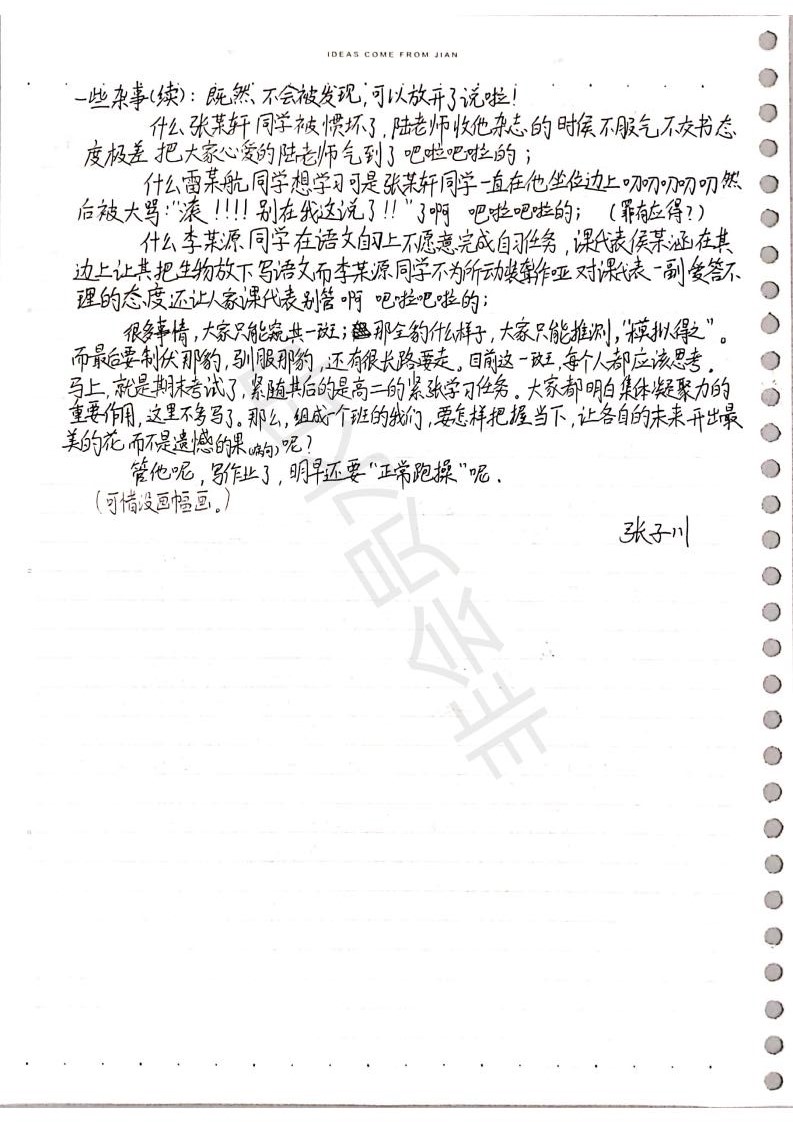 IDEAS COME FROM JIAN
一些杂事(续)：既然不会被发现，可以放开了说啦！
什么张某轩同学被惯坏了，陆老师收他杂志的时侯不服气不交书态
度极差把大家心爱的陆老师气到了吧啦吧啦的；
什么雷某航同学想学习可是张某轩同学一直在他坐位边上叨叨叨叨叨然
后被大骂："滚！！！！别在我这说了！！"了啊 吧啦吧啦的； (罪有应得？)
什么李某源同学在语文自习上不愿意完成自习任务，课代表侯某涵在其
边上让其把生物放下写语文而李某源同学不为所动装聋作哑对课代表一副爱答不
理的态度还让人家课代表别管啊 吧啦吧啦的；
很多事情，大家只能窥其一斑；那全豹什么样子，大家只能推测，"模拟得之"。
而最后要制伏那豹，驯服那豹，还有很长路要走。目前这一斑，每个人都应该思考。
马上，就是期末考试了，紧随其后的是高二的紧张学习任务。大家都明白集体凝聚力的
重要作用，这里不多写了。那么，组成一个班的我们，要怎样把握当下，让各自的未来开出最
美的花而不是遗憾的果呢？
管他呢，写作业了，明早还要"正常跑操"呢．
(可惜没画幅画。)
张子川
非会员水印